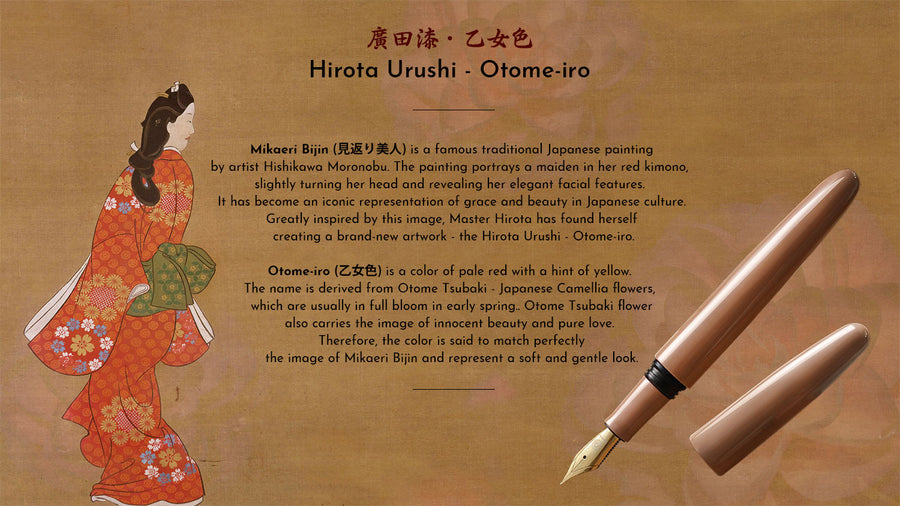 廣田漆・乙女色
Hirota Urushi - Otome-iro
Mikaeri Bijin (見返り美人) is a famous traditional Japanese painting
by artist Hishikawa Moronobu. The painting portrays a maiden in her red kimono,
slightly turning her head and revealing her elegant facial features.
It has become an iconic representation of grace and beauty in Japanese culture.
Greatly inspired by this image, Master Hirota has found herself
creating a brand-new artwork - the Hirota Urushi - Otome-iro.
Otome-iro (乙女色) is a color of pale red with a hint of yellow.
The name is derived from Otome Tsubaki - Japanese Camellia flowers,
which are usually in full bloom in early spring.. Otome Tsubaki flower
also carries the image of innocent beauty and pure love.
Therefore, the color is said to match perfectly
the image of Mikaeri Bijin and represent a soft and gentle look.